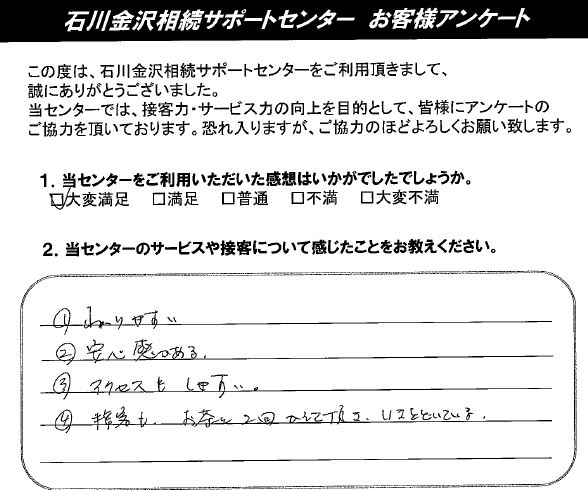 石川金沢相続サポートセンター お客様アンケート
この度は、石川金沢相続サポートセンターをご利用頂きまして、
誠にありがとうございました。
当センターでは、接客力・サービス力の向上を目的として、皆様にアンケートの
ご協力を頂いております。恐れ入りますが、ご協力のほどよろしくお願い致します。
1．当センターをご利用いただいた感想はいかがでしたでしょうか。
☑大変満足 □満足 □普通 □不満 □大変不満
2．当センターのサービスや接客について感じたことをお教えください。
① わかりやすい
② 安心感がある。
③ アクセスも しやすい。
④ 接客も、お茶を2回 かえて頂き、